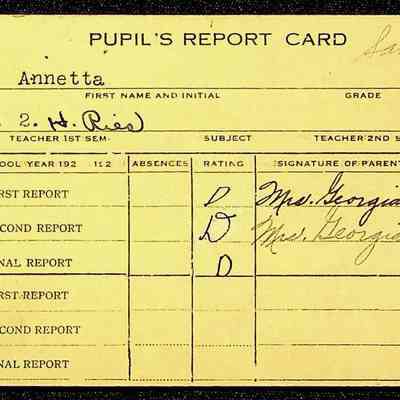 PUPIL'S REPORT CARD
Annetta
FIRST NAME AND INITIAL GRADE
2. H. Ries
TEACHER 1ST SEM. SUBJECT TEACHER 2ND S
OOL YEAR 192 192 ABSENCES RATING SIGNATURE OF PARENT
RST REPORT D Mrs. Georgia
COND REPORT D Mrs. Georgia
NAL REPORT D
RST REPORT
COND REPORT
NAL REPORT